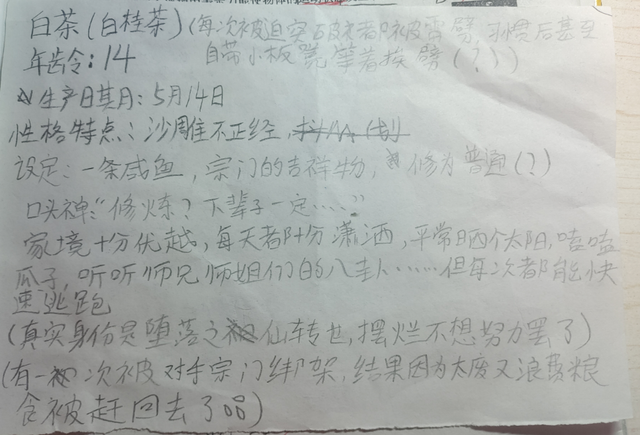 白茶(白桂茶)(每次被迫突破都被雷劈,习惯后甚至
年龄:14 自带小板凳等着挨劈(?))
生产日期:5月14日
性格特点:沙雕不正经,
设定:一条咸鱼,宗门的吉祥物,修为普通(?)
口头禅:“修炼?下辈子一定……”
家境十分优越,每天都十分潇洒,平常晒个太阳,嗑嗑
瓜子,听听师兄师姐们的八卦……但每次都能快
速逃跑
(真实身份是堕落之仙转世,摆烂不想努力罢了)
(有一次被对手宗门绑架,结果因为太废又浪费粮
食被赶回去了)